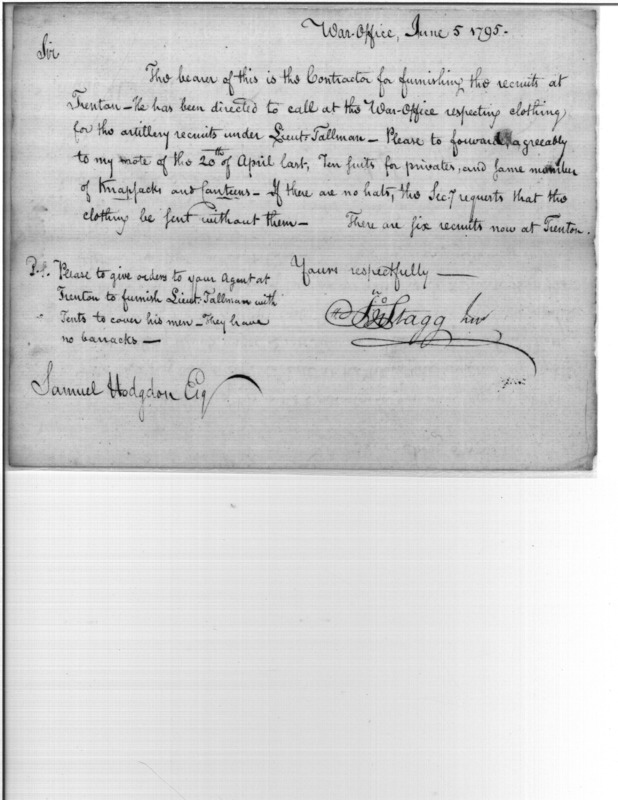 War-Office, June 5 1795.
Sir
The bearer of this is the Contractor for furnishing the recruits at
Trenton - He has been directed to call at the War-Office respecting clothing
for the artillery recruits under Lieut. Tallman - Please to forward, agreeably
to my note of the 20th of April last, Ten suits for privates, and same number
of Knapsacks and Canteens - If there are no hats, the Secy requests that the
clothing be sent without them - There are six recruits now at Trenton.
Yours respectfully -
P.S. Please to give orders to your Agent at
Trenton to furnish Lieut. Tallman with
Tents to cover his men - They have
no barracks -
Jno Stagg Junr
Samuel Hodgdon Esq